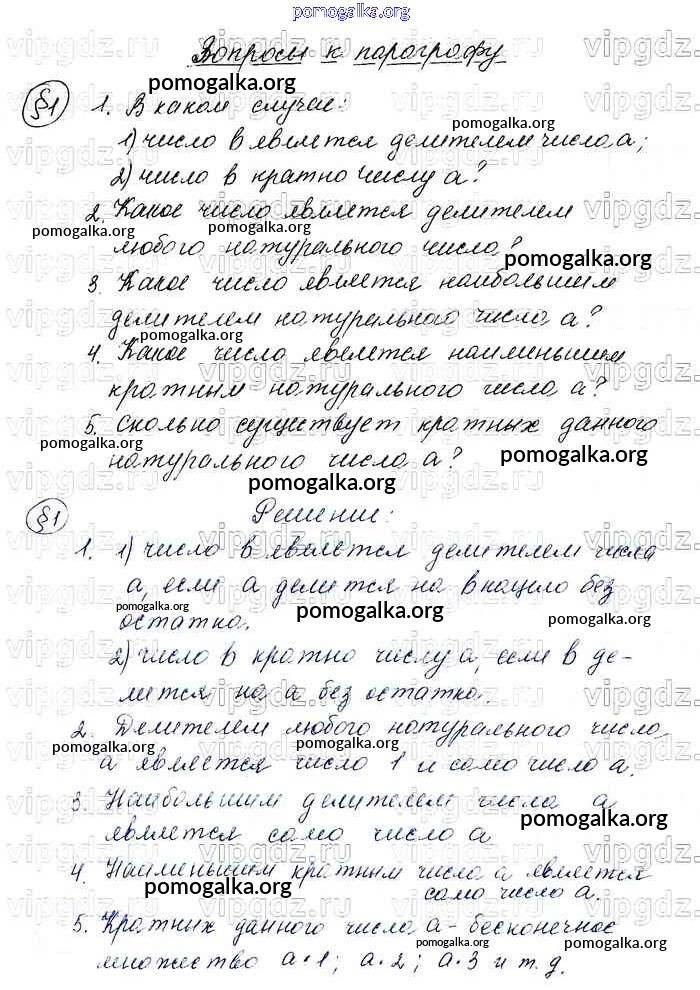 pomogalka.org
Вопросы к параграфу
§1 1. В каком случае:
1) число в является делителем числа а;
2) число в кратно числу а?
2. Какое число является делителем
любого натурального числа?
3. Какое число является наибольшим
делителем натурального числа а?
4. Какое число является наименьшим
кратным натурального числа а?
5. Сколько существует кратных данного
натурального числа а?
§1 Решение:
1. 1) число в является делителем числа
а, если а делится на в нацело без
остатка.
2) число в кратно числу а, если в де-
лится на а без остатка.
2. Делителем любого натурального числа
а является число 1 и само число а.
3. Наибольшим делителем числа а
является само число а
4. Наименьшим кратным числа а является
само число а.
5. Кратных данного числа а - бесконечное
множество а·1; а·2; а·3 и т.д.